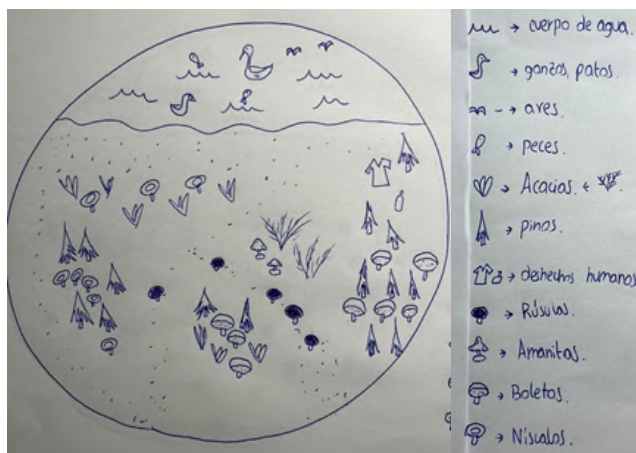 → cuerpo de agua.
→ ganzos, patos.
→ aves.
→ peces.
→ Acacias. +
→ pinos.
→ deshechos humanos
→ Rúsulas.
→ Amanitas.
→ Boletos.
→ Níscalos.